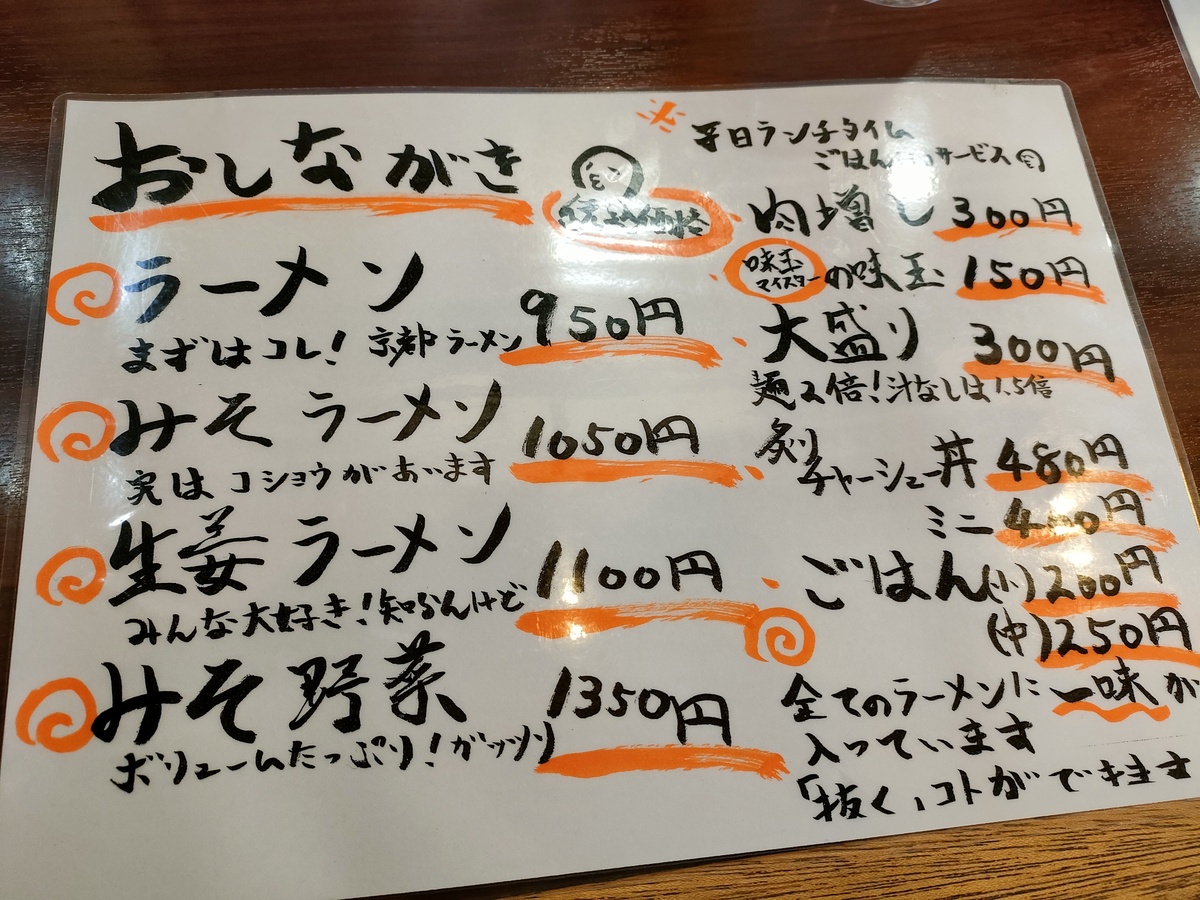 おしながき
税込価格
ラーメン 950円
まずはコレ! 京都ラーメン
みそラーメン 1050円
実はコショウがあいます
生姜ラーメン 1100円
みんな大好き!知らんけど
みそ野菜 1350円
ボリュームたっぷり!ガッツリ
平日ランチタイム
ごはん サービス
肉増し 300円
味玉マイスターの味玉 150円
大盛り 300円
麺2倍!汁なしは1.5倍
炙りチャーシュー丼 480円
ミニ 400円
ごはん(小) 200円
(中) 250円
全てのラーメンに一味が
入っています
「抜く」コトができます